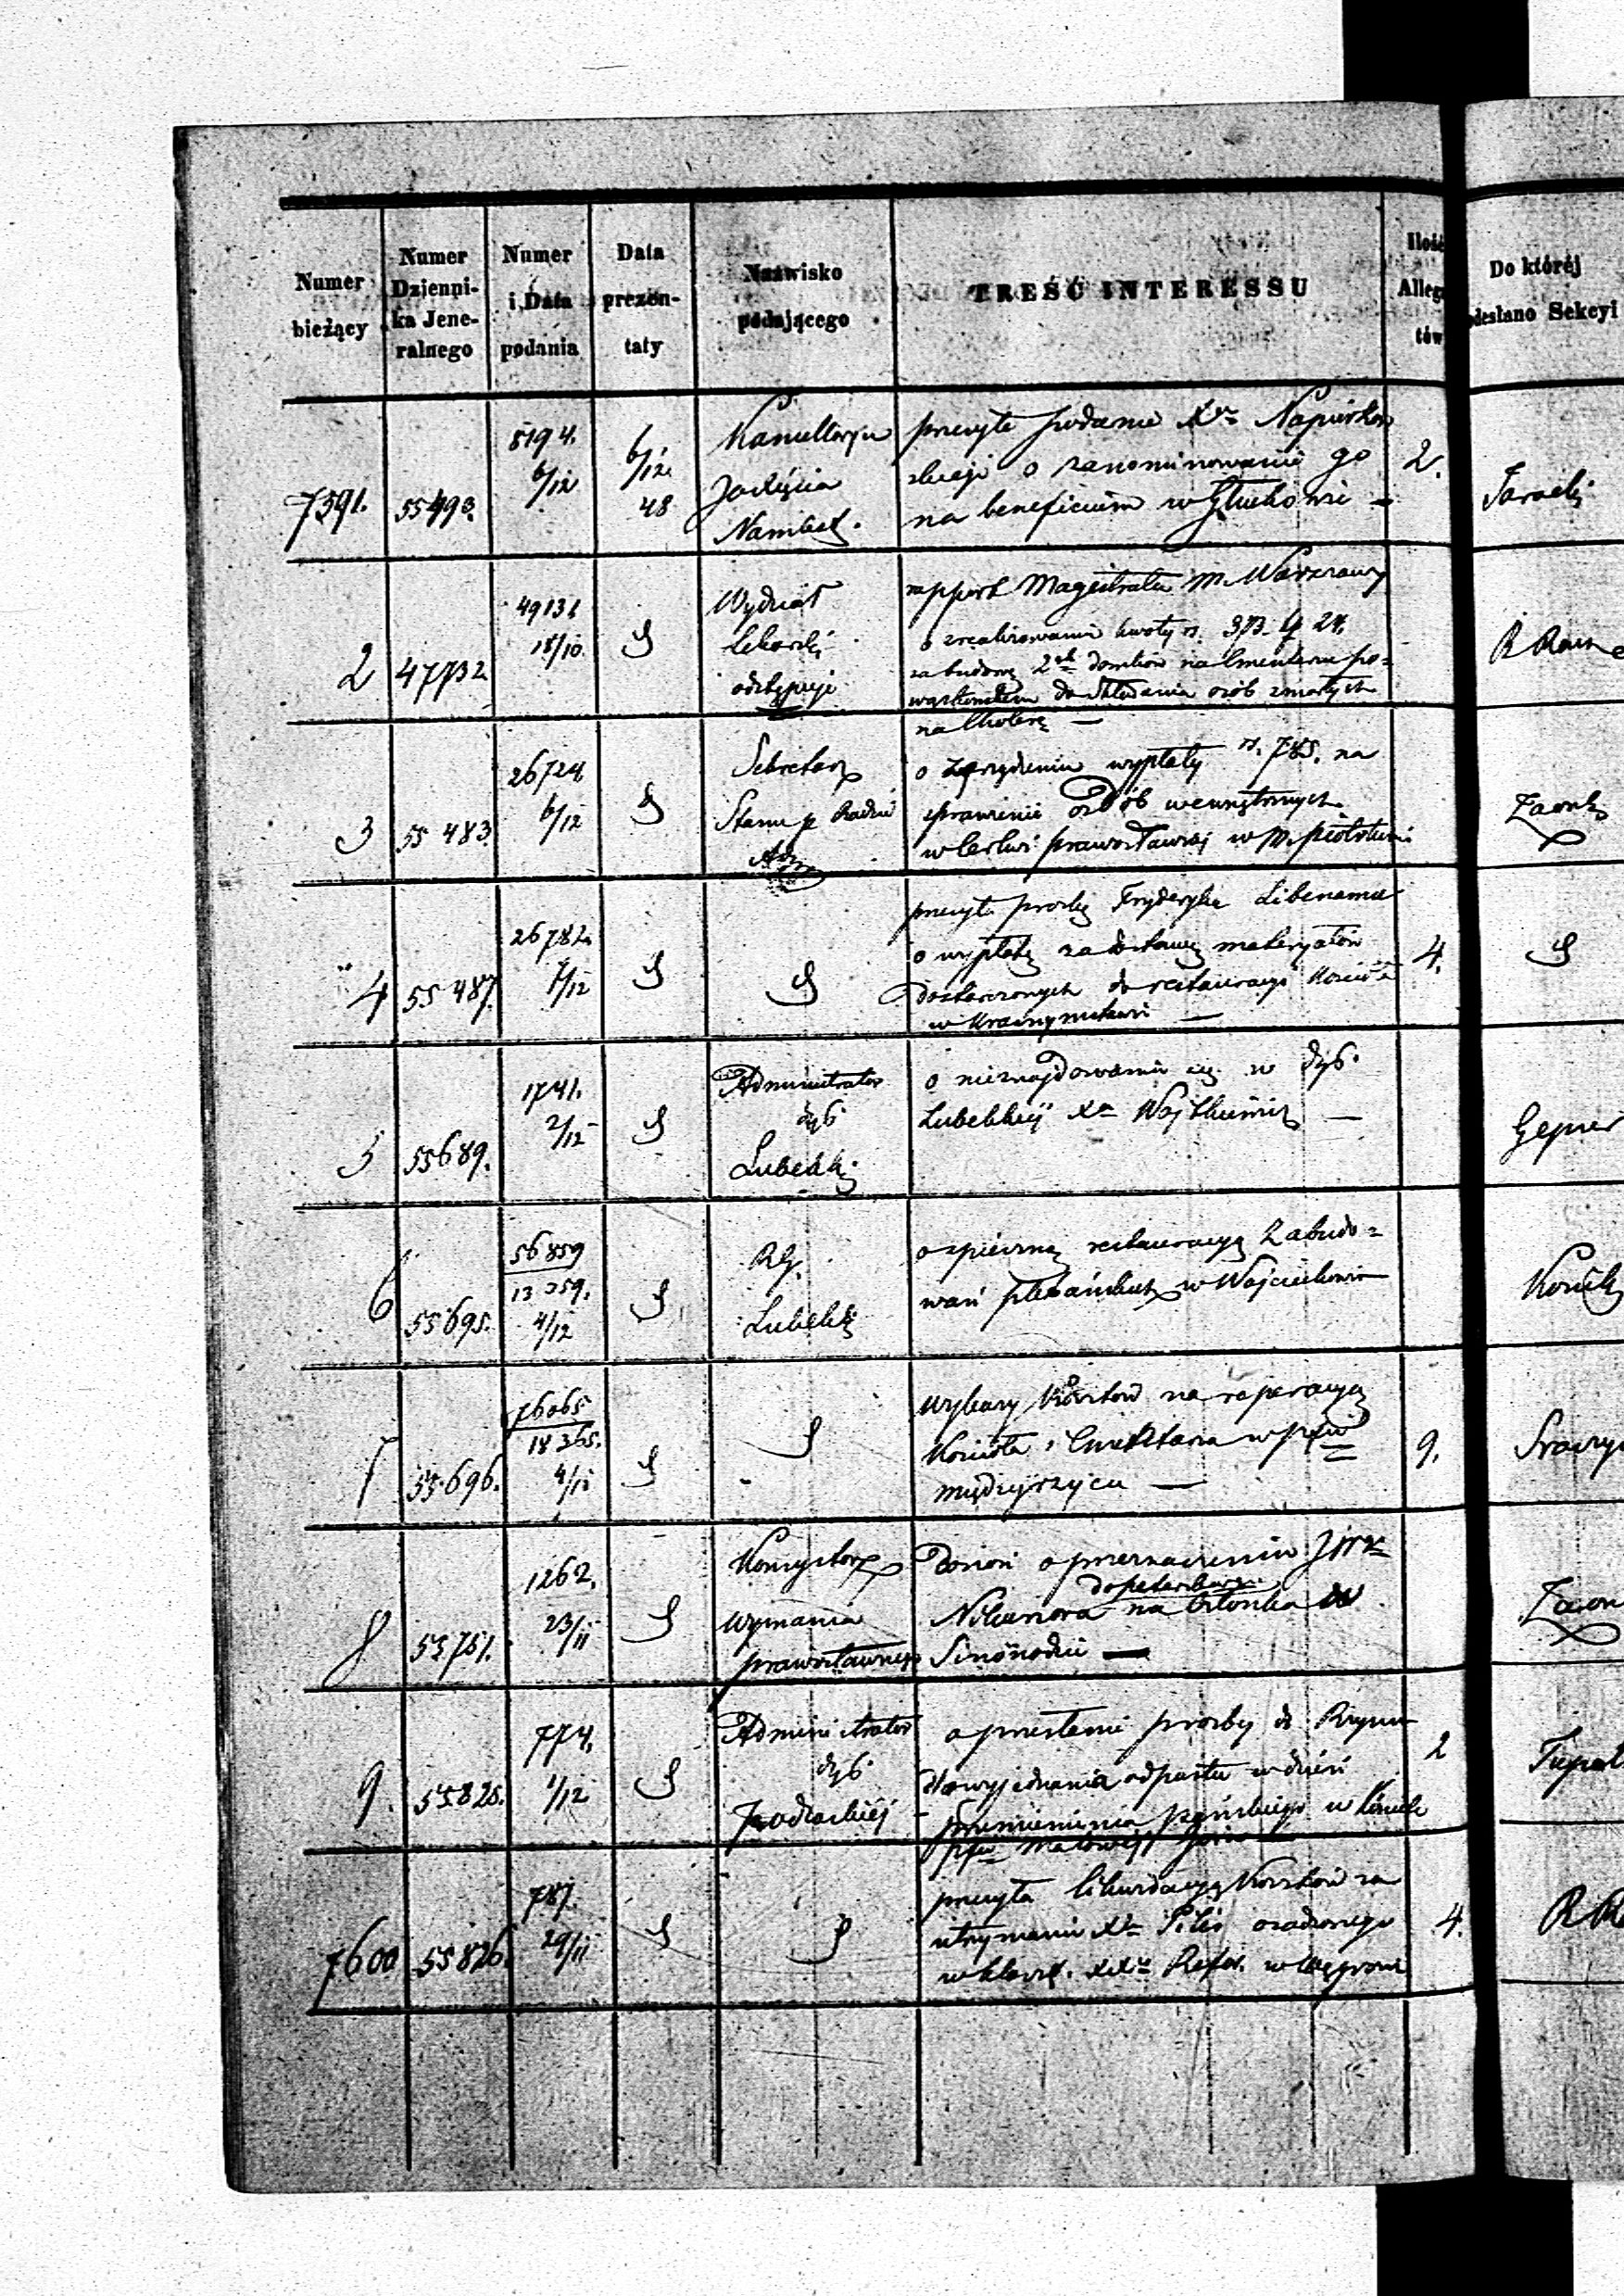 Numer bieżący
Numer Dzienni-ka Jene-ralnego
Numer i Data podania
Data prezen-taty
Nazwisko podającego
TREŚĆ INTERESSU
Ilość Allega tów
Do któréj odesłano Sekcyi
7591. 55493. 5194. 6/12 6/12. 48
Kancellarya
Namiest.
przesyła podanie Xa
o zanominowanie go
na beneficium w 
2.
2 47732 49131 18/10 S
Wydział
Lekarski
odstępuje
rapport Magistratu m. Warszawy
o zrealizowanie kwoty rs. 373. 24.
za budowę 2ch domków na Cmentarzu po=
wązkowskim do składania osób zmarłych
na Cholerę —
3 55483 26724 6/12 S
Sekretarz
Stanu
o zarządzenie wypłaty rs. 785. na
sprawienie ozdób wewnętrznych
w Cerkwi prawosławnej w m.
4 55487. 26782. 7/12 S S
przesyła prośbę Fryderyka Libenama
o wypłatę za dostawę materyałów
dostarczonych do restauracyi Kościoła
w Krasnymstawie —
4. S
5 55689. 1741. 2/12 S
Administrator
dyś
Lubelski
o nieznajdowaniu się w dyś.
Lubelskiej Xa —
6 55695. 56859 13359. 4/12 S
RG.
Lubelski
o spieszną restauracyą Zabudo=
wań plebańskich w Wojciechowie
7 55696. 76065 18365. 4/12 S S
wykazy Kosztów na reperacyą
Kościoła i Cmentarza w
Międzyrzycu —
9.
8 55751. 1262. 23/11 S
Konsystorz
wyznania
prawosławnego
Donosi o przeznaczeniu JW Xa
do Petersburga
Nikanora na Członka w
Synodzie —
9. 55825. 774. 1/12 S
Administrator
dyś
Podlaskiéj
o przesłanie prośby do Rzymu
dla wyjednania odpustu w dzień
Przemienienia pańskiego w Kościele
2
7600 55826. 787. 29/11 S S
przesyła likwidacyą Kosztów za
utrzymanie Xa osadzonego
w klaszt. XXw Refor. w Węgrowie
4.